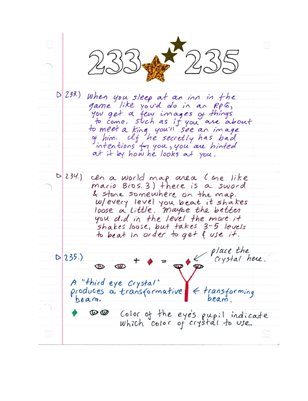 233 235
233.) When you sleep at an inn in the
game like you'd do in an RPG,
you get a few images of things
to come. Such as if you are about
to meet a king you'll see an image
of him. If he secretly has bad
intentions for you, you are hinted
at it by how he looks at you.
234.) On a world map area (one like
Mario Bros. 3) there is a sword
& stone somewhere on the map.
w/every level you beat it shakes
loose a little. Maybe the better
you did in the level the more it
shakes loose, but takes 3-5 levels
to beat in order to get & use it.
235.) + =
place the
crystal here.
A "third eye crystal"
produces a transformative
beam.
transforming
beam.
Color of the eye's pupil indicate
which color of crystal to use.